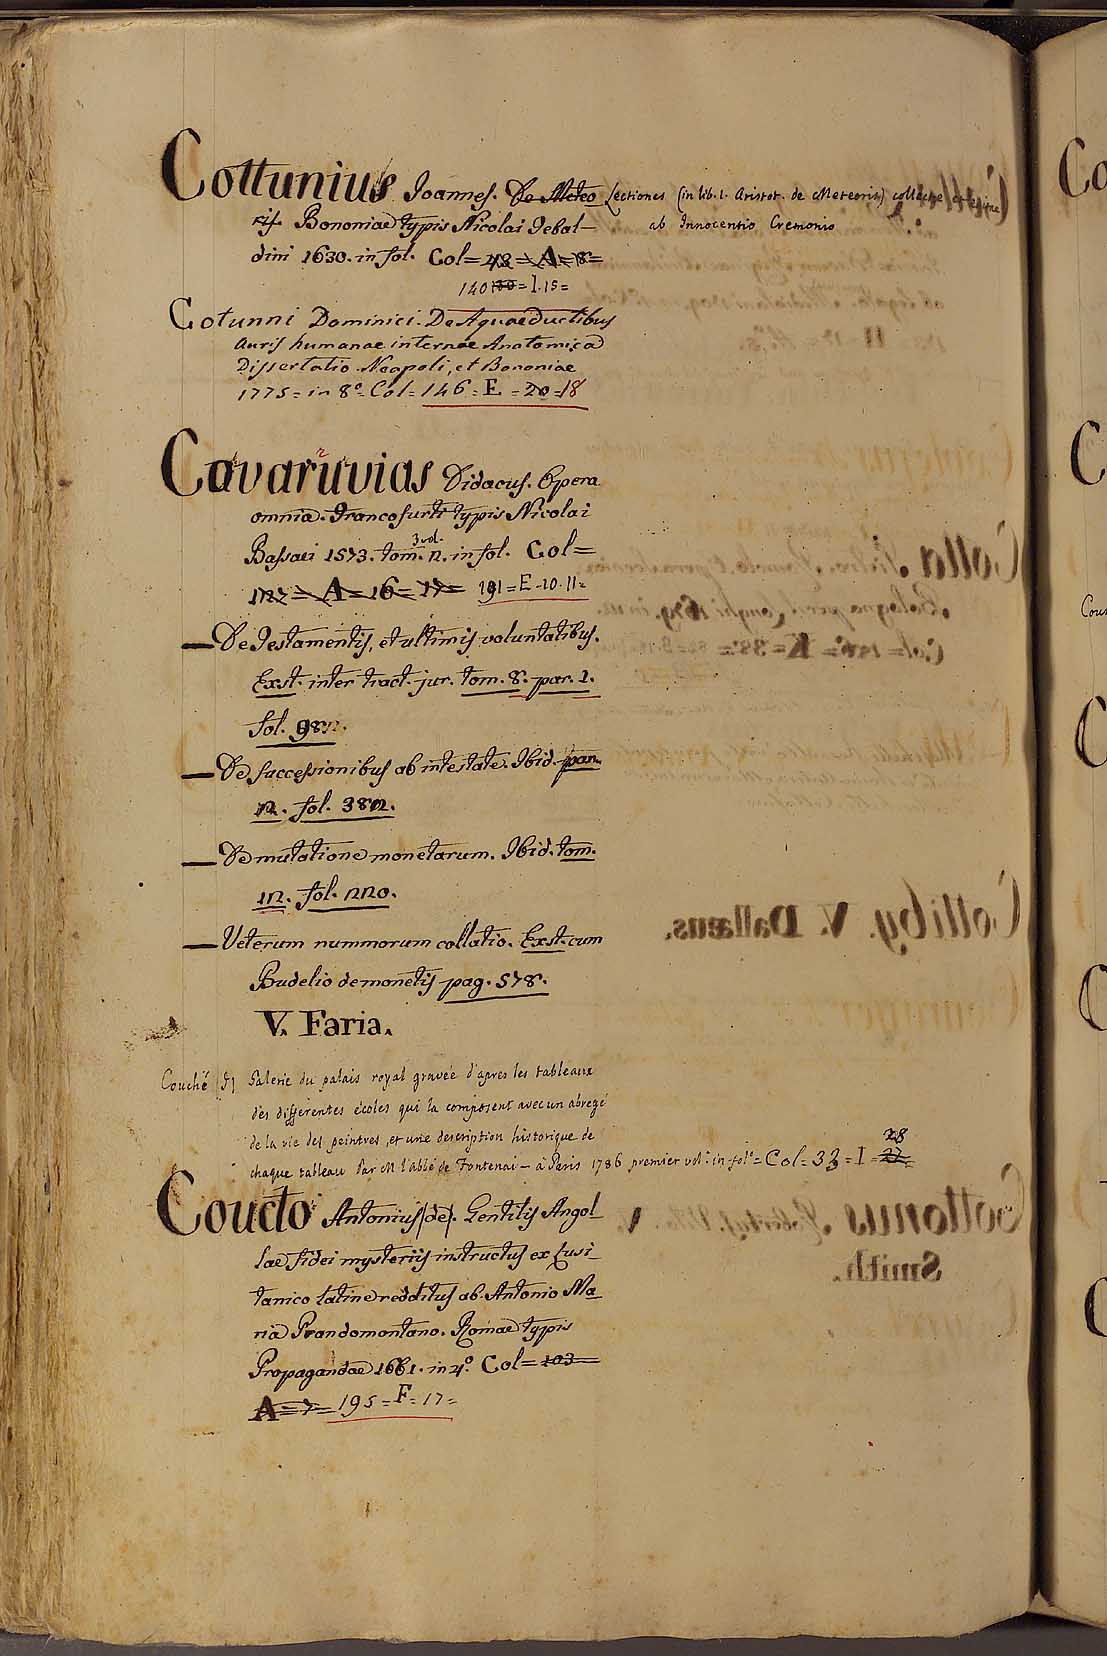 Cottunius Joannes. De Meteo Lectiones (in lib. 1. Aristot. de Meteoris) collectae
ris. Bononiae typis Nicolai Tebal- ab Innocentio Cremonio
dini 1630. in fol. Col= 43 = A = 8 =
140 = I. 15 =
Cotunni Dominici. De Aquaeductibus
Auris humanae internae Anatomica
Dissertatio. Neapoli, et Bononiae
1775 = in 8º = Col = 146 = E = 20 = 18
Covaruvias Didacus. Opera
omnia. Francofurti typis Nicolai
3 vol.
Bassaei 1573. tom. 2. in fol. Col=
127 = A = 16 = 17 = 191 = E - 10. 11 =
— De Testamentis, et ultimis voluntatibus.
Exst. inter tract. jur. tom. 8. par. 1.
fol. 982.
— De successionibus ab intestato. Ibid. par.
2. fol. 382.
— De mutatione monetarum. Ibid. tom.
12. fol. 220.
— Veterum nummorum collatio. Exst. cum
Budelio de monetis pag. 578.
V. Faria.
Couché (J) Galerie du palais royal gravée d'apres les tableaux
des differentes écoles qui la composent avec un abregé
de la vie des peintres, et une description historique de
28
chaque tableau Par M. l'abbé de Fontenai — à Paris 1786 premier vol. in fol = Col = 33 = I = 27
Coucto Antonius (de). Gentilis Angol-
lae fidei mysteriis instructus ex Lusi-
tanico latine redditus ab Antonio Ma-
ria Prandomontano. Romae typis
Propagandae 1661. in 4º. Col= 103
A = 7 = 195 = F = 17 =